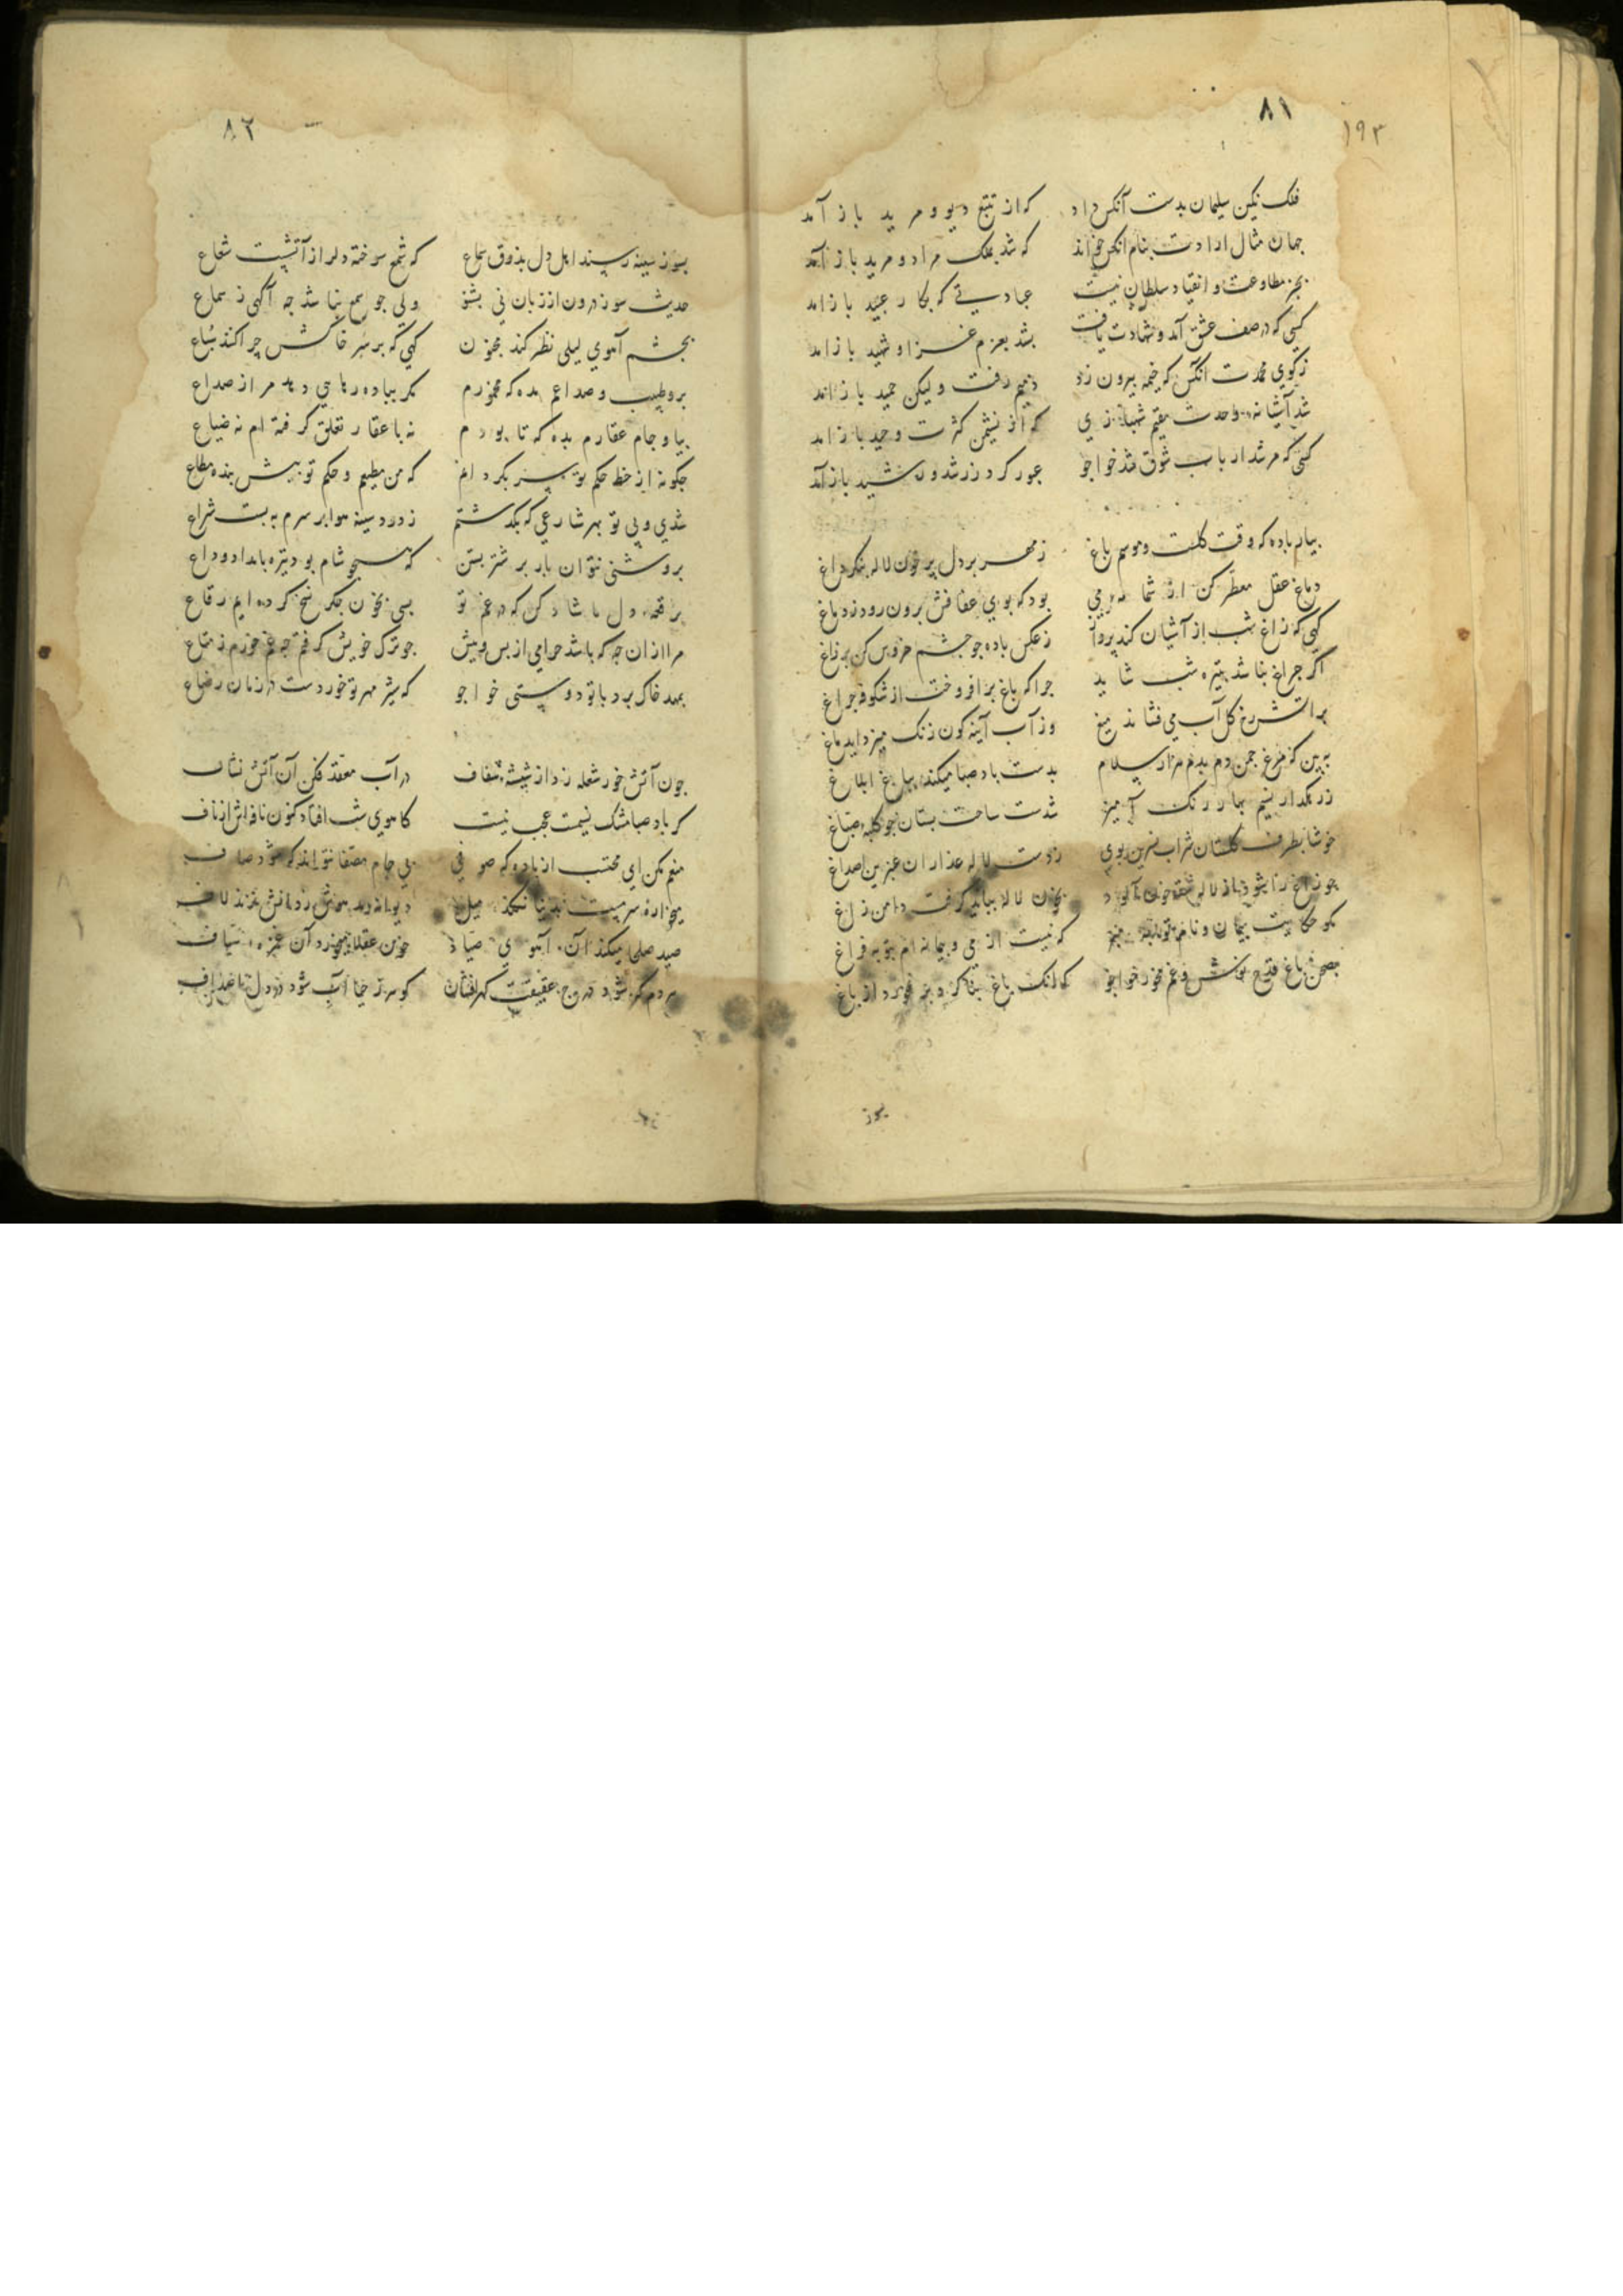 ۸۱
۱۹۳
فلک نکین سلیمان بدست آنکس داد که از تتبع دیو و مرید باز آمد
جهان مثال ارادت بنام انکس خواند که شد بملک مراد و مرید باز آمد
بجز مطاوعت و انقیاد سلطان نیست عبادتی که بکار عبید باز امد
کسی که در صف عشق آمد و شهادت یافت بشد بعزم غزا و شهید باز امد
ز کوی محمدت انکس که خیمه بیرون زد ذمیم رفت و لیکن حمید باز امد
شد آشیانه وحدت مقیم شهبازی که از نشیمن کثرت وحید باز امد
کسی که مرشد ارباب شوق شد خواجو عبور کرد ز رشد و رشید باز آمد
بیار باده که وقت کلست و موسم باغ ز مهر بر دل پر خون لاله بنکر داغ
دماغ عقل معطر کن از شمامه می بود که بوی عفافش برون رود ز دماغ
کهی که زاغ شب از آشیان کند پرواز ز عکس باده جو جشم خروس کن پر زاغ
اکر جراغ نباشد بتیره شب شاید جرا که باغ بر افروخت از شکوفه جراغ
بر اتش رخ کل آب می فشاند میغ وز آب آینه کون زنک میزداید ماغ
ببین که مرغ جمن دم بدم هزار سلام بدست باد صبا میکند بباغ ابلاغ
ز رهکذار نسیم بهار رنک آمیز شدست ساحت بستان جو کلبه صباغ
خوشا بطرف کلستان شراب نسرین بوی ز دست لاله عذاران عنبرین اصداغ
جو زاغ را بشود باز لاله شقه خون آلود بخون لالا بباید کرفت دامن زاغ
مکو حکایت پیمان و نام توبه مبر که نیست از می و بیمانه ام بتوبه فراغ
بصحن باغ قدح نوش و غم مخور خواجو که لنک باغ بناکرد بر خورد از باغ
بسوز
۸۲
بسوز سینه رسند اهل دل بذوق سماع که شمع سوخته دل را از آتشیست شعاع
حدیث سوز درون از زبان نی بشنو ولی جو سمع نباشد جه آکهی ز سماع
بجشم آهوی لیلی نظر کند مجنون کهی که بر سر خاکش جرا کنند سباع
برو طبیب و صداعم مده که مخمورم مکر بباده رهایی دهد مرا ز صداع
بیا و جام عقارم بده که تا بودم نه با عقار تعلق کرفته ام نه ضیاع
جکونه از خط حکم تو سر بکردانم که من مطیعم و حکم تو بیش بنده مطاع
شدی و بی تو بهر شارعی که بکذشتم ز دود سینه هوا بر سرم ببست شراع
بروشنی نتوان بار بر شتر بستن که صبح شام بود تیره بامداد وداع
برقعه دل ما شاد کن که در غم تو بسی بخون جکر نسخ کرده ایم رقاع
مرا ازان جه که باشد حرامی از بس و پیش جو ترک خویش کرفتم جه غم خورم ز متاع
بمهد خاک برد با تو دوستی خواجو که شیر مهر تو خوردست در زمان رضاع
جون آتش خور شعله زد از شیشه شفاف در آب معقد فکن آن آتش نشاف
کر باد صبا مشک نسیمست عجب نیست کاهوی شب افتاد کنون نافه اش از ناف
منعم مکن ای محتسب از باده که صوفی بی جام مصفا نتواند که شود صاف
میخواره سرمست بدنیا نکند میل
صید صلحا میکند آن آهوی صیاد خون عقلا میخورد آن غمزه سیاف
هر دم که شود درج عقیقت کهرافشان کوهر ز حیا آب شود در دل اصداف